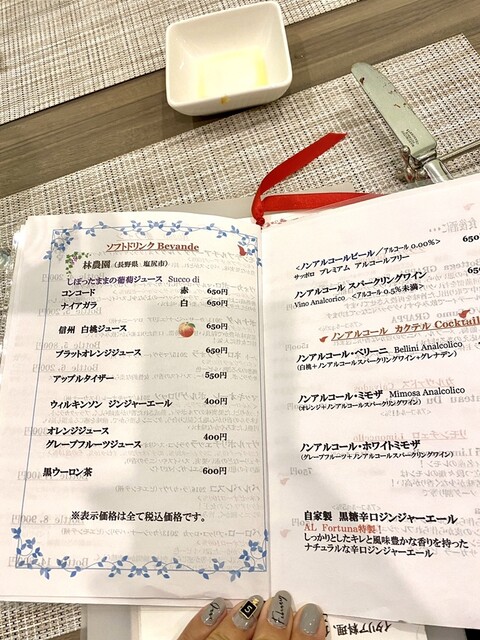 ソフトドリンク Bevande
林農園（長野県 塩尻市）
しぼったままの葡萄ジュース Succo di
コンコード 赤 650円
ナイアガラ 白 650円
信州 白桃ジュース 650円
ブラッドオレンジジュース 650円
アップルタイザー 550円
ウィルキンソン ジンジャーエール 400円
オレンジジュース
グレープフルーツジュース 400円
黒ウーロン茶 600円
※表示価格は全て税込価格です。
<ノンアルコールビール／アルコール 0.00%> 650
サッポロ プレミアム アルコールフリー
ノンアルコール スパークリングワイン 650
Vino Analcorico <アルコール0.5%未満>
ノンアルコール カクテル Cocktail
ノンアルコール・ベリーニ Bellini Analcolico
（白桃＋ノンアルコールスパークリングワイン＋グレナデン）
ノンアルコール・ミモザ Mimosa Analcolico
（オレンジ＋ノンアルコールスパークリングワイン）
ノンアルコール・ホワイトミモザ
（グレープフルーツ＋ノンアルコールスパークリングワイン）
自家製 黒糖辛口ジンジャーエール
AL Fortuna特製！
しっかりとしたキレと風味豊かな香りを持った
ナチュラルな辛口ジンジャーエール
イタリア料理、